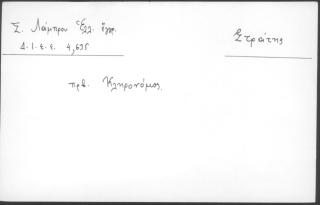 Σ. Λάμπρου Ἑλλ. ἔγγρ.
Δ.Ι.Ε.Ε. 4,635
Στραίτης
πρβ. Κληρονόμος.